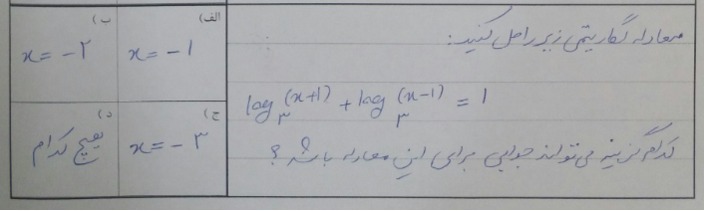 معادله لگاریتمی زیر را حل کنید:
log₃(x+1) + log₃(x-1) = 1
کدام گزینه می‌تواند جوابی برای این معادله باشد؟
الف) x = -1
ب) x = -2
ج) x = -3
د) هیچ کدام